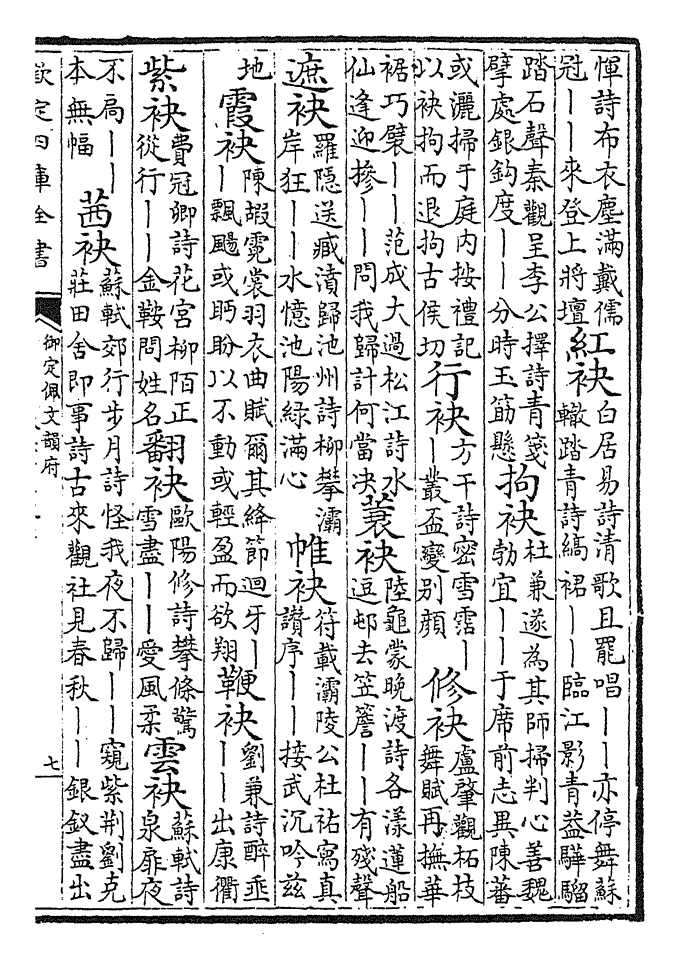 惲詩布衣塵滿戴儒冠――來登上將壇紅袂白居易詩清歌且罷唱――亦停舞蘇轍踏青詩縞裙――臨江影青益驊騮
踏石聲秦觀呈李公擇詩青箋擘處銀鈎度――分時玉筯懸拘袂杜兼遂為其師掃判心善魏勃宜――于席前志異陳蕃
或灑掃于庭內按禮記以袂拘而退拘古侯切行袂方干詩密雪霑――叢盃變別顔修袂盧肇觀柘枝舞賦再撫華
裾巧襞――范成大過松江詩水仙逢迎摻――問我歸計何當决蓑袂陸龜蒙晚渡詩各漾蓮船逗邨去笠簷――有殘聲
遮袂羅隱送臧濆歸池州詩柳攀灞岸狂――水憶池陽綠滿心帷袂符載灞陵公杜祐寫真讚序――接武沉吟兹
地霞袂陳嘏霓裳羽衣曲賦爾其絳節迴牙――飄颺或眄盼以不動或輕盈而欲翔鞭袂劉兼詩醉垂――出康衢
紫袂費冠卿詩花宮柳陌正從行――金鞍問姓名翻袂歐陽修詩攀條驚雪盡――愛風柔雲袂蘇軾詩泉扉夜
不扃――本無幅茜袂蘇軾郊行步月詩怪我夜不歸――窺紫荆劉克莊田舍即事詩古來觀社見春秋――銀釵盡出
欽定四庫全書
御定佩文韻府
七